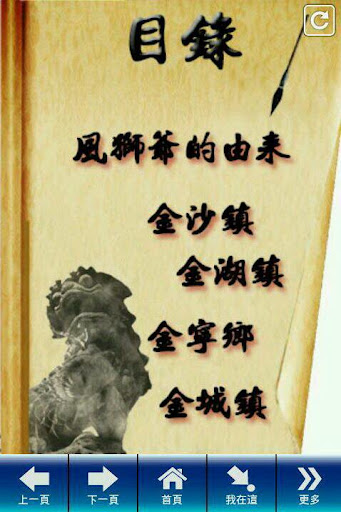 目錄
風獅爺的由来
金沙鎮
金湖鎮
金寧鄉
金城鎮
上一頁
下一頁
首頁
我在這
更多